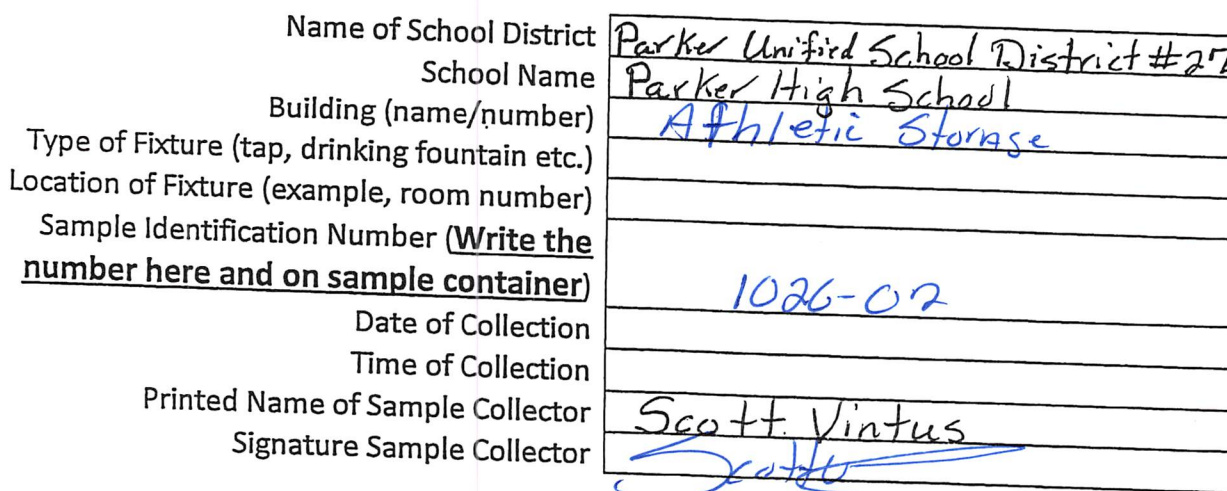 Name of School District Parker Unified School District #27
School Name Parker High School
Building (name/number) Athletic Storage
Type of Fixture (tap, drinking fountain etc.)
Location of Fixture (example, room number)
Sample Identification Number (Write the
number here and on sample container) 1026-02
Date of Collection
Time of Collection
Printed Name of Sample Collector Scott Vintus
Signature Sample Collector